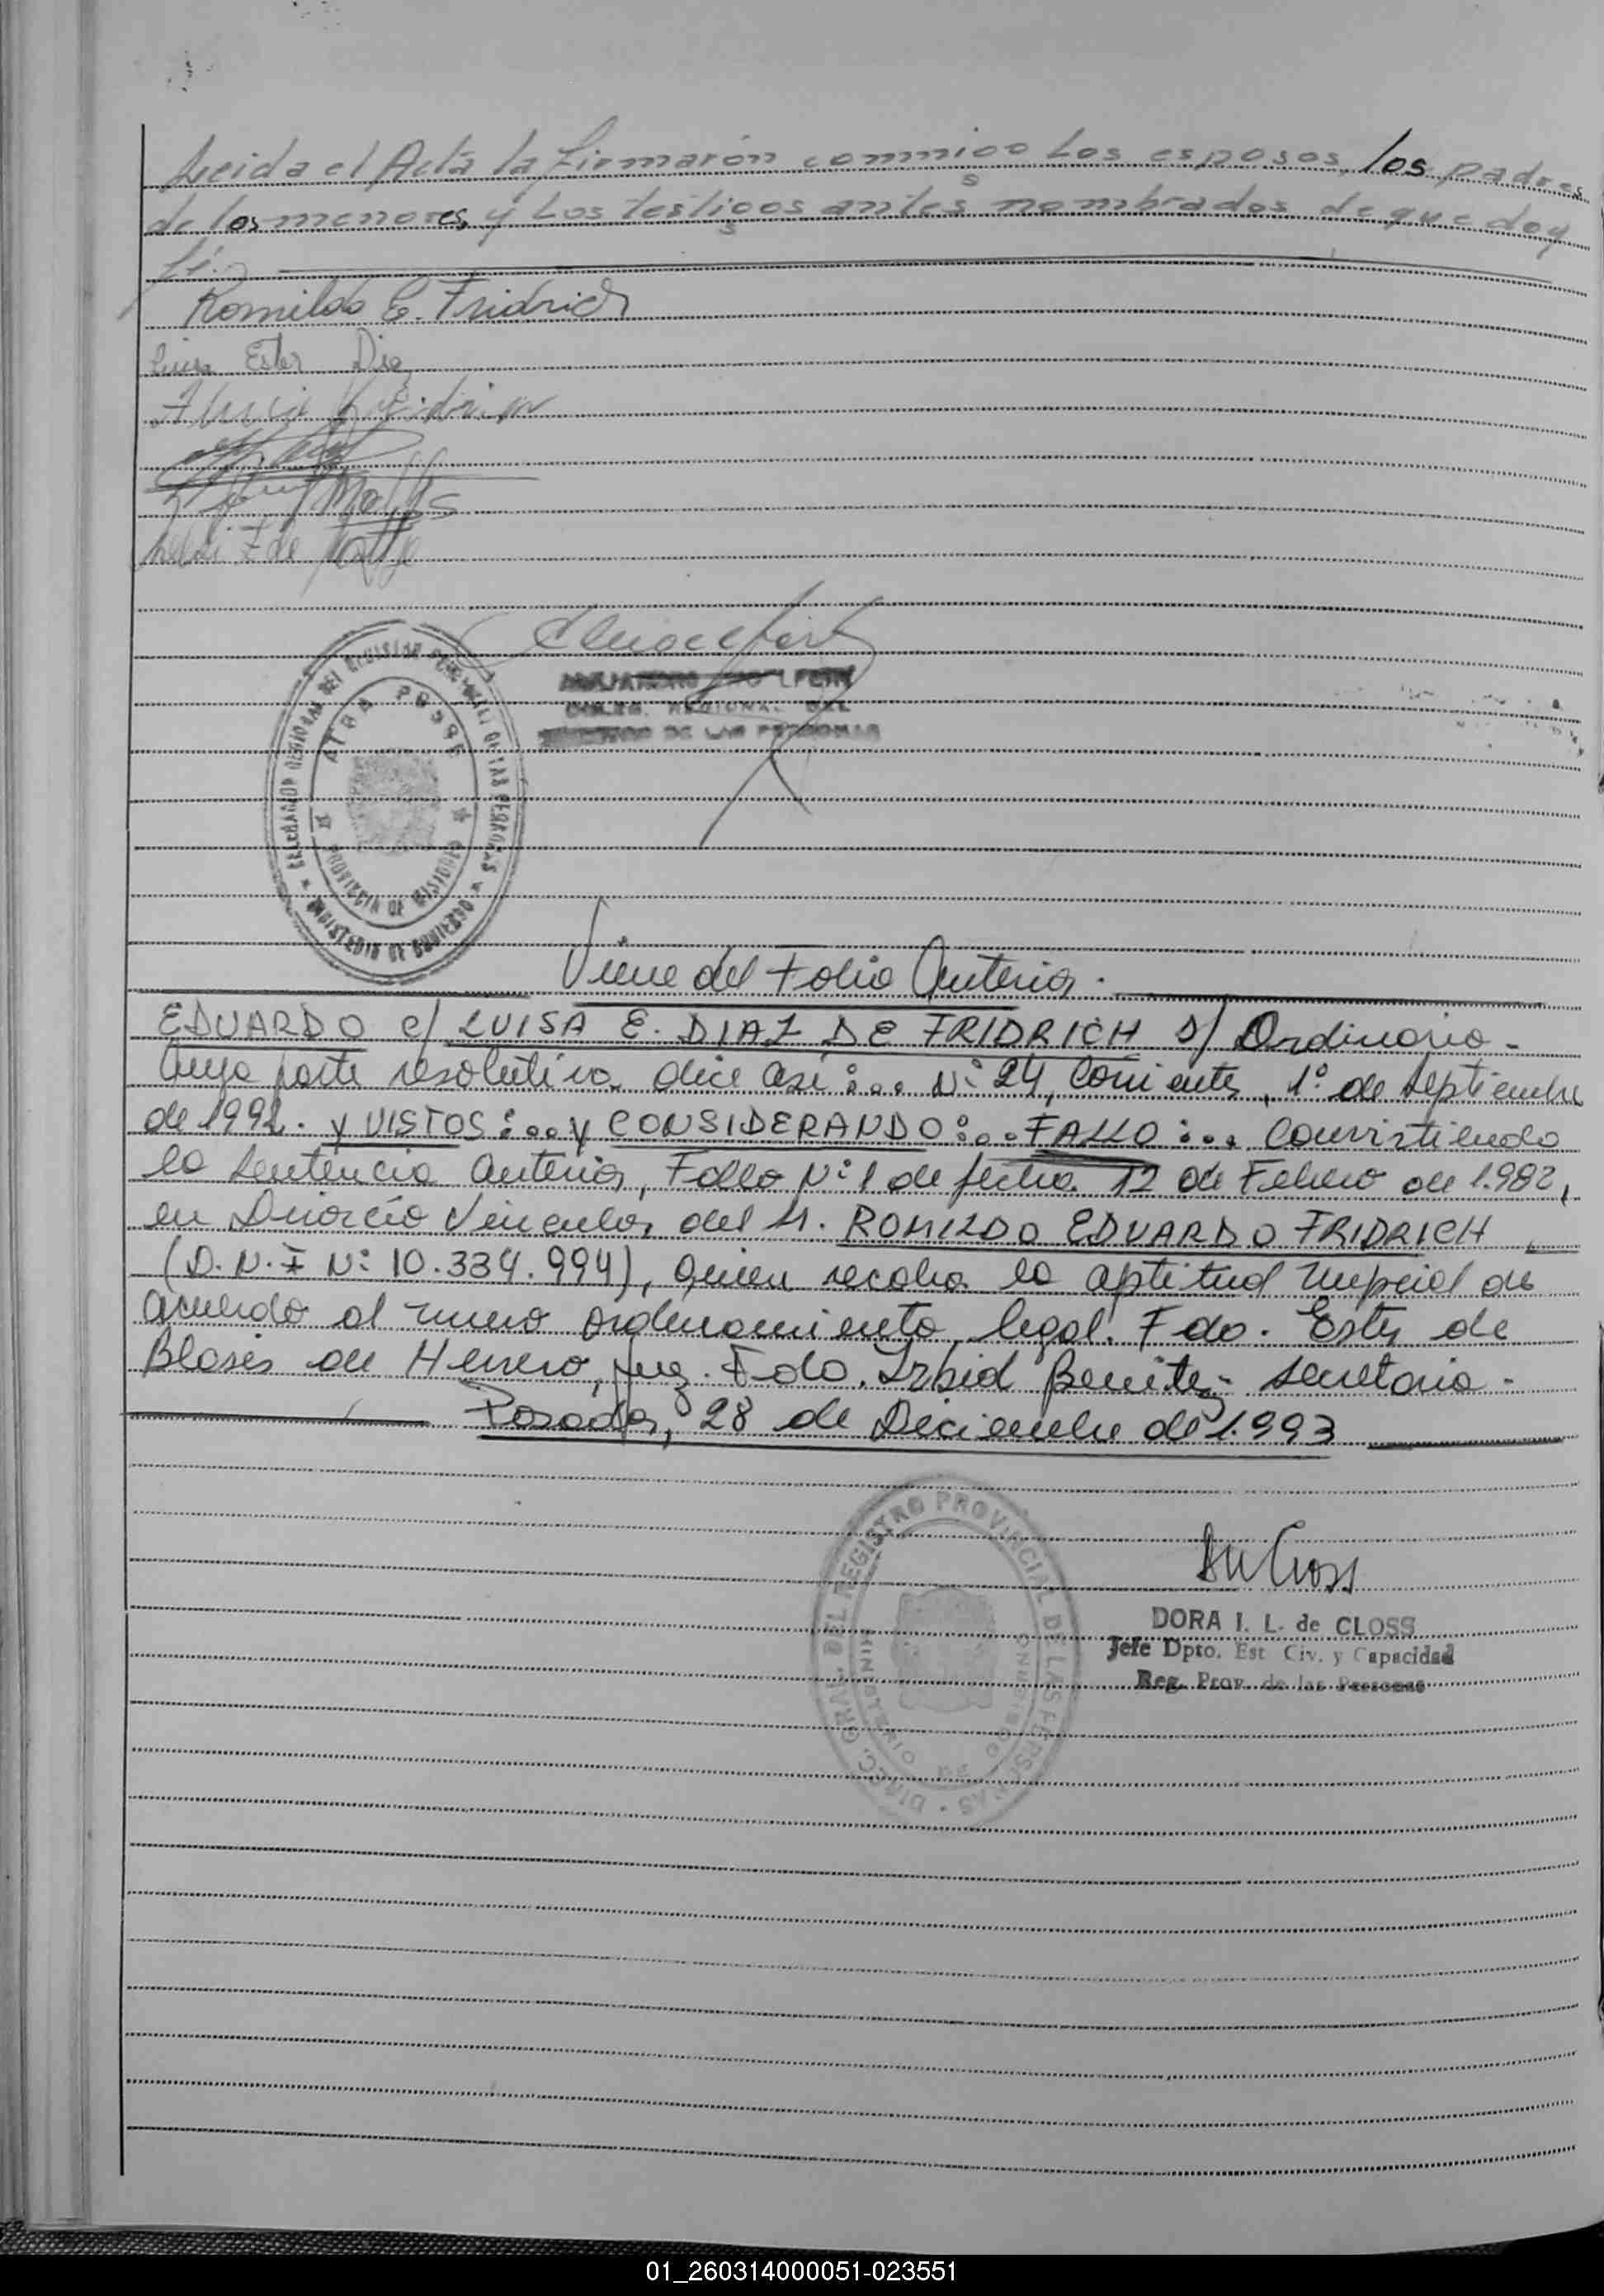 Leida el Acta la firmarón conmigo Los esposos, los padres
de los menores, y Los testigos antes nombrados de que doy
fé.
Romildo E. Fridrich
Luisa Ester Diaz
DELEGACION REGIONAL DEL REGISTRO PROVINCIAL DE LAS PERSONAS
MINISTERIO DE GOBIERNO
PROVINCIA DE MISIONES
REGIONAL DEL
DE LAS PERSONAS
Viene del Folio Anterior.
EDUARDO c/ LUISA E. DIAZ DE FRIDRICH s/ Ordinario-
Cuya parte resolutiva dice así:... Nº 24, Corrientes, 1º de Septiembre
de 1992. Y VISTOS:... y CONSIDERANDO:... FALLO:... Convirtiendo
la Sentencia Anterior, Fallo Nº 1 de fecha 12 de Febrero de 1.982,
en Divorcio Vincular, del Sr. ROMILDO EDUARDO FRIDRICH
(D.N.I Nº 10.334.994), quien recobra la aptitud nupcial de
acuerdo al nuevo ordenamiento legal. Fdo. Ester de
Blasis de Herrero, Juez. Fdo. Irbid Benitez - Secretaria-
Posadas, 28 de Diciembre de 1.993
DIREC. GRAL. DEL REGISTRO PROVINCIAL DE LAS PERSONAS
MINISTERIO DE GOBIERNO
DORA I. L. de CLOSS
Jefe Dpto. Est Civ. y Capacidad
Reg. Prov. de las Personas
01_260314000051-023551